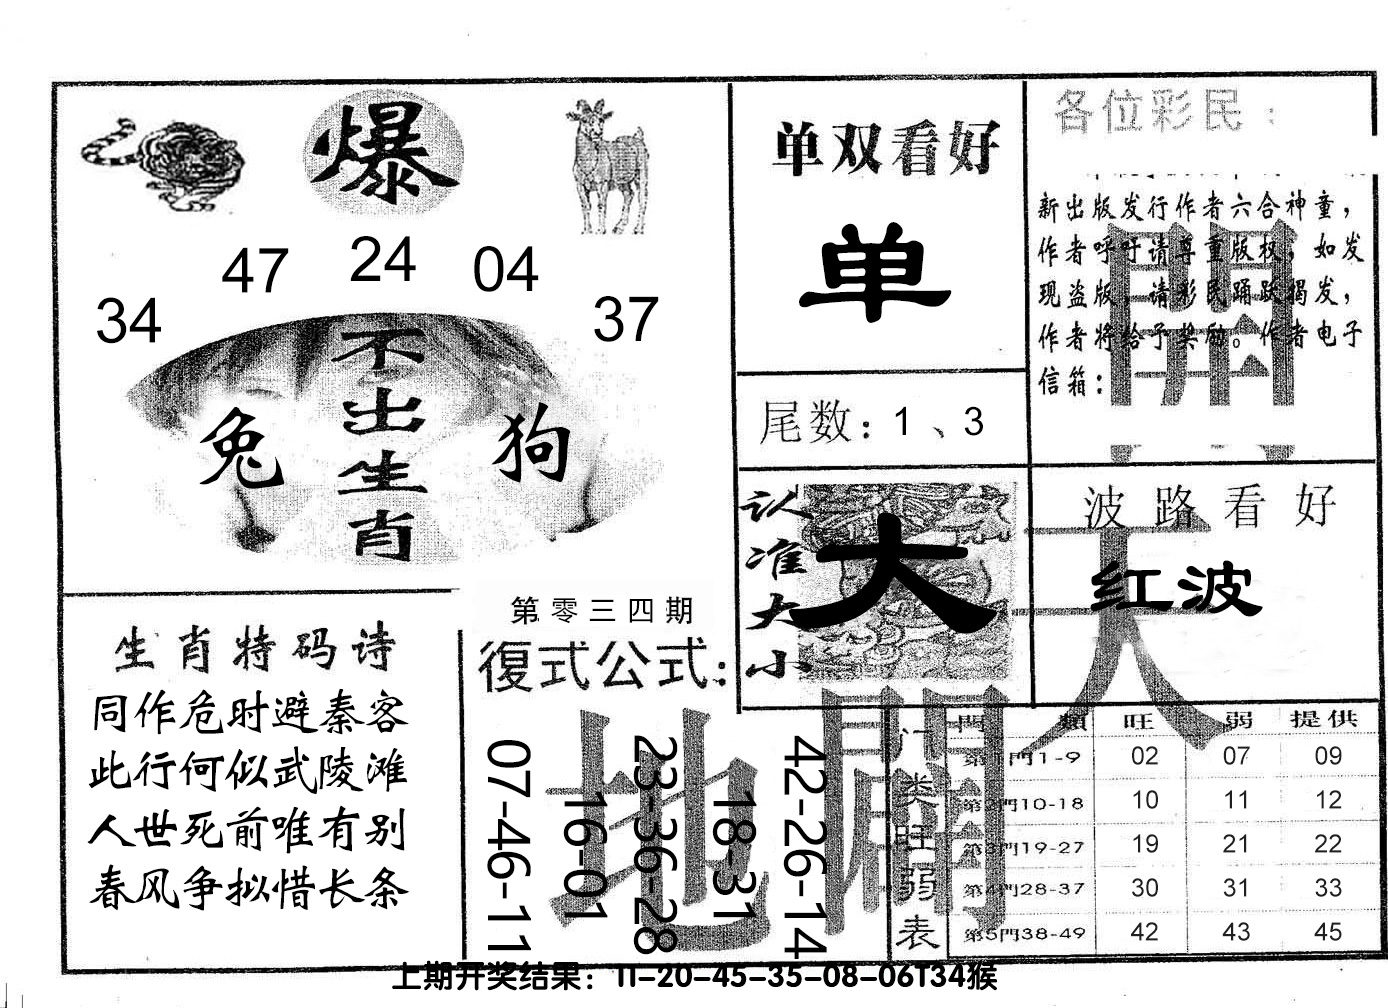 爆
34 47 24 04 37
不出生肖
兔 狗
生肖特码诗
同作危时避秦客
此行何似武陵滩
人世死前唯有别
春风争拟惜长条
单双看好
单
尾数：1、3
认准大小
大
各位彩民：
新出版发行作者六合神童，
作者呼吁请尊重版权，如发
现盗版，请彩民踊跃揭发，
作者将给予奖励。作者电子
信箱：
開
波路看好
红波
天
第零三四期
復式公式：
07-46-11
16-01
23-36-28
18-31
42-26-14
地
門类旺弱表
門類 旺 弱 提供
第1門1-9 02 07 09
第2門10-18 10 11 12
第3門19-27 19 21 22
第4門28-37 30 31 33
第5門38-49 42 43 45
上期开奖结果：11-20-45-35-08-06T34猴